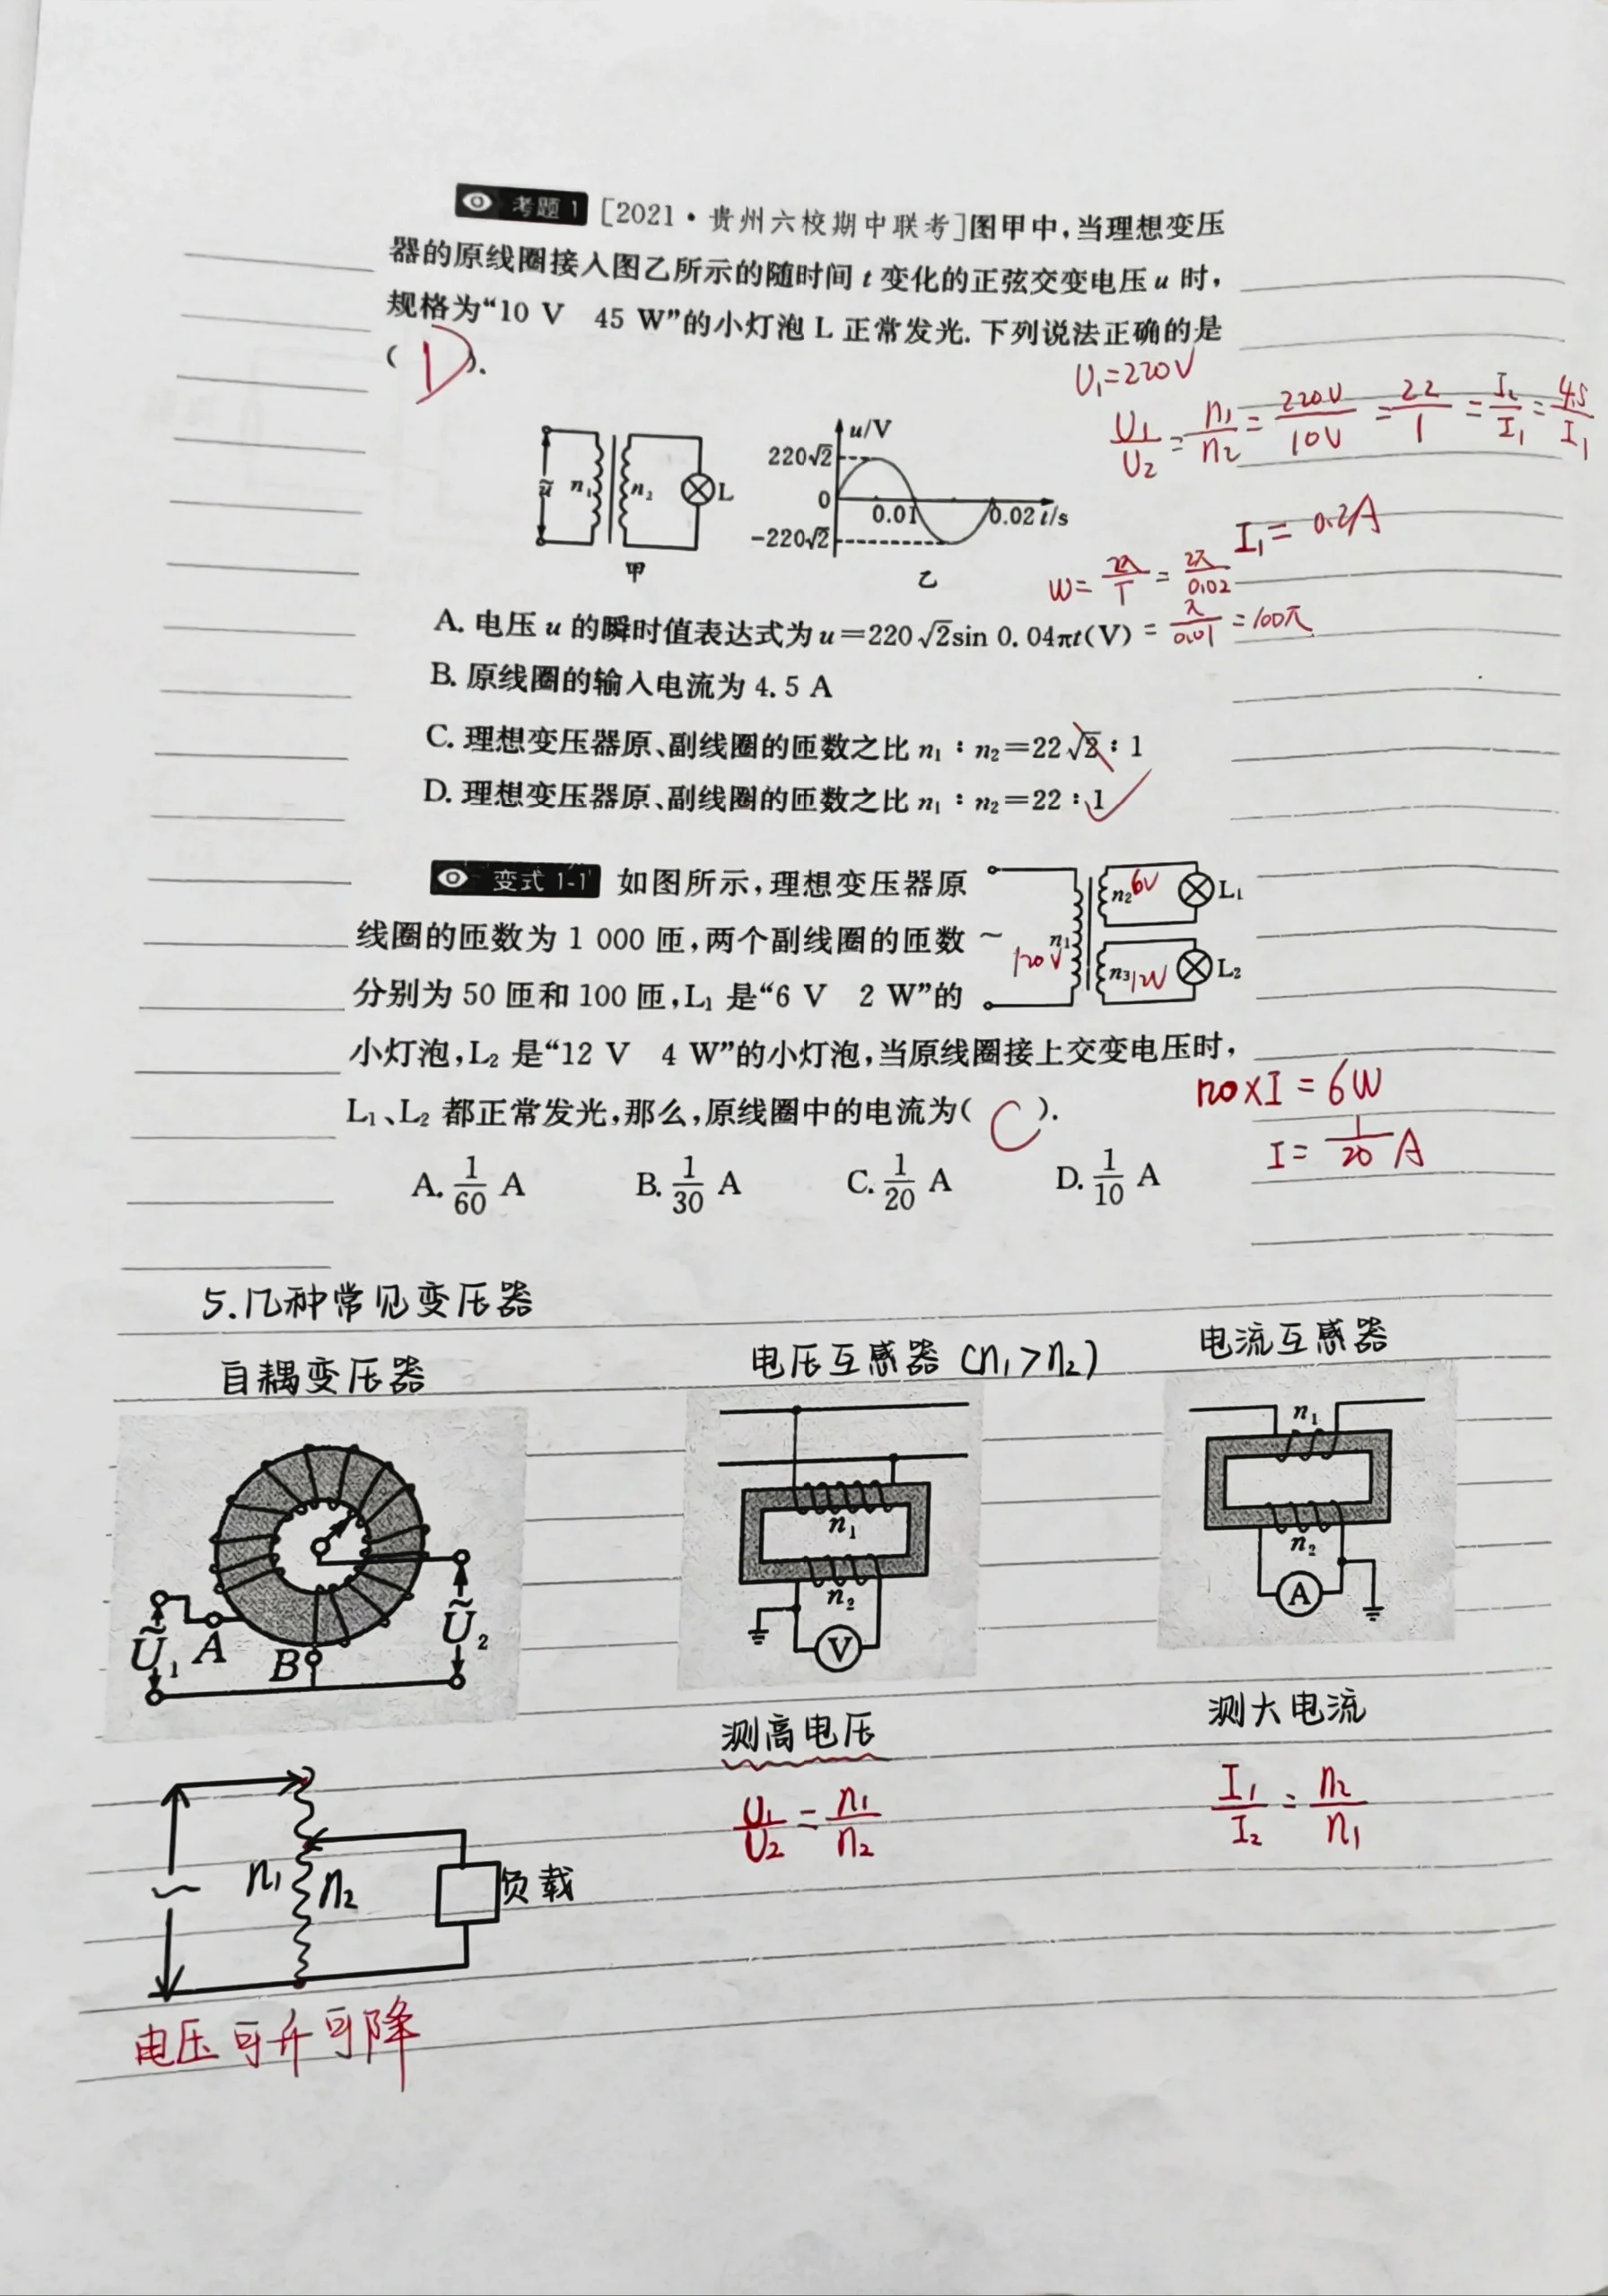 考题1 [2021·贵州六校期中联考]图甲中,当理想变压
器的原线圈接入图乙所示的随时间 t 变化的正弦交变电压 u 时,
规格为“10 V 45 W”的小灯泡 L 正常发光. 下列说法正确的是
( D ).
U₁=220V
U₁/U₂ = n₁/n₂ = 220V/10V = 22/1 = I₂/I₁ = 4.5/I₁
I₁= 0.2A
ũ n₁ n₂ L
甲
u/V
220√2
0
0.01
0.02 t/s
-220√2
乙
W= 2π/T = 2π/0.02
= π/0.01 = 100π
A. 电压 u 的瞬时值表达式为 u=220√2sin 0.04πt(V)
B. 原线圈的输入电流为 4.5 A
C. 理想变压器原、副线圈的匝数之比 n₁ : n₂=22√2 : 1
D. 理想变压器原、副线圈的匝数之比 n₁ : n₂=22 : 1
变式 1-1 如图所示,理想变压器原
线圈的匝数为 1 000 匝,两个副线圈的匝数
分别为 50 匝和 100 匝,L₁ 是“6 V 2 W”的
小灯泡,L₂ 是“12 V 4 W”的小灯泡,当原线圈接上交变电压时,
L₁、L₂ 都正常发光,那么,原线圈中的电流为( C ).
n₂ 6V L₁
~ n₁
120V
n₃ 12V L₂
120×I = 6W
I = 1/20 A
A. 1/60 A B. 1/30 A C. 1/20 A D. 1/10 A
5.几种常见变压器
自耦变压器
电压互感器 (n₁>n₂)
电流互感器
Ũ₁ A B Ũ₂
n₁
n₂
V
n₁
n₂
A
测高电压
测大电流
U₁/U₂ = n₁/n₂
I₁/I₂ = n₂/n₁
~ n₁ n₂ 负载
电压可升可降